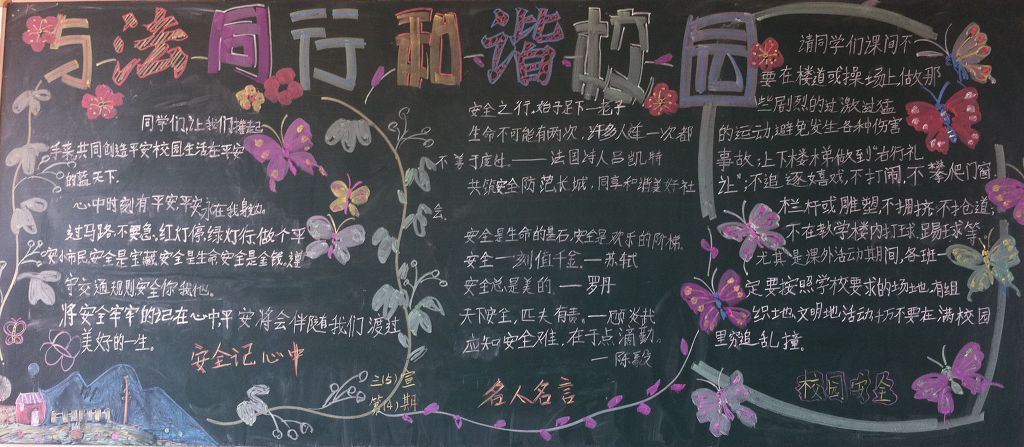 与法同行和谐校园
同学们,让我们携起
手来共同创造平安校园生活在平安
的蓝天下.
心中时刻有平安,平安永在我身边.
过马路,不要急,红灯停,绿灯行,做个平
安小市民安全是宝藏安全是生命安全是金钱,遵
守交通规则安全你我他.
将安全牢牢的记在心中,平安将会伴随我们渡过
美好的一生.
安全记心中
三(5)宣
第(4)期
安全之行,始于足下—老子
生命不可能有两次,许多人连一次都
不善于度过.——法国诗人吕凯特
共筑安全防范长城,同享和谐美好社
会.
安全是生命的基石,安全是欢乐的阶梯.
安全一刻值千金.—苏轼
安全总是美的.—罗丹
天下安全,匹夫有责.—顾炎武
应知安全难,在于点滴勤.
—陈毅
名人名言
请同学们课间不
要在楼道或操场上做那
些剧烈的过激过猛
的运动,避免发生各种伤害
事故;上下楼梯做到“右行礼
让”;不追逐嬉戏,不打闹,不攀爬门窗
栏杆或雕塑,不拥挤,不抢道;
不在教学楼内打球踢球等.
尤其是课外活动期间,各班一
定要按照学校要求的场地,有组
织地、文明地活动,千万不要在满校园
里穷追乱撞.
校园安全